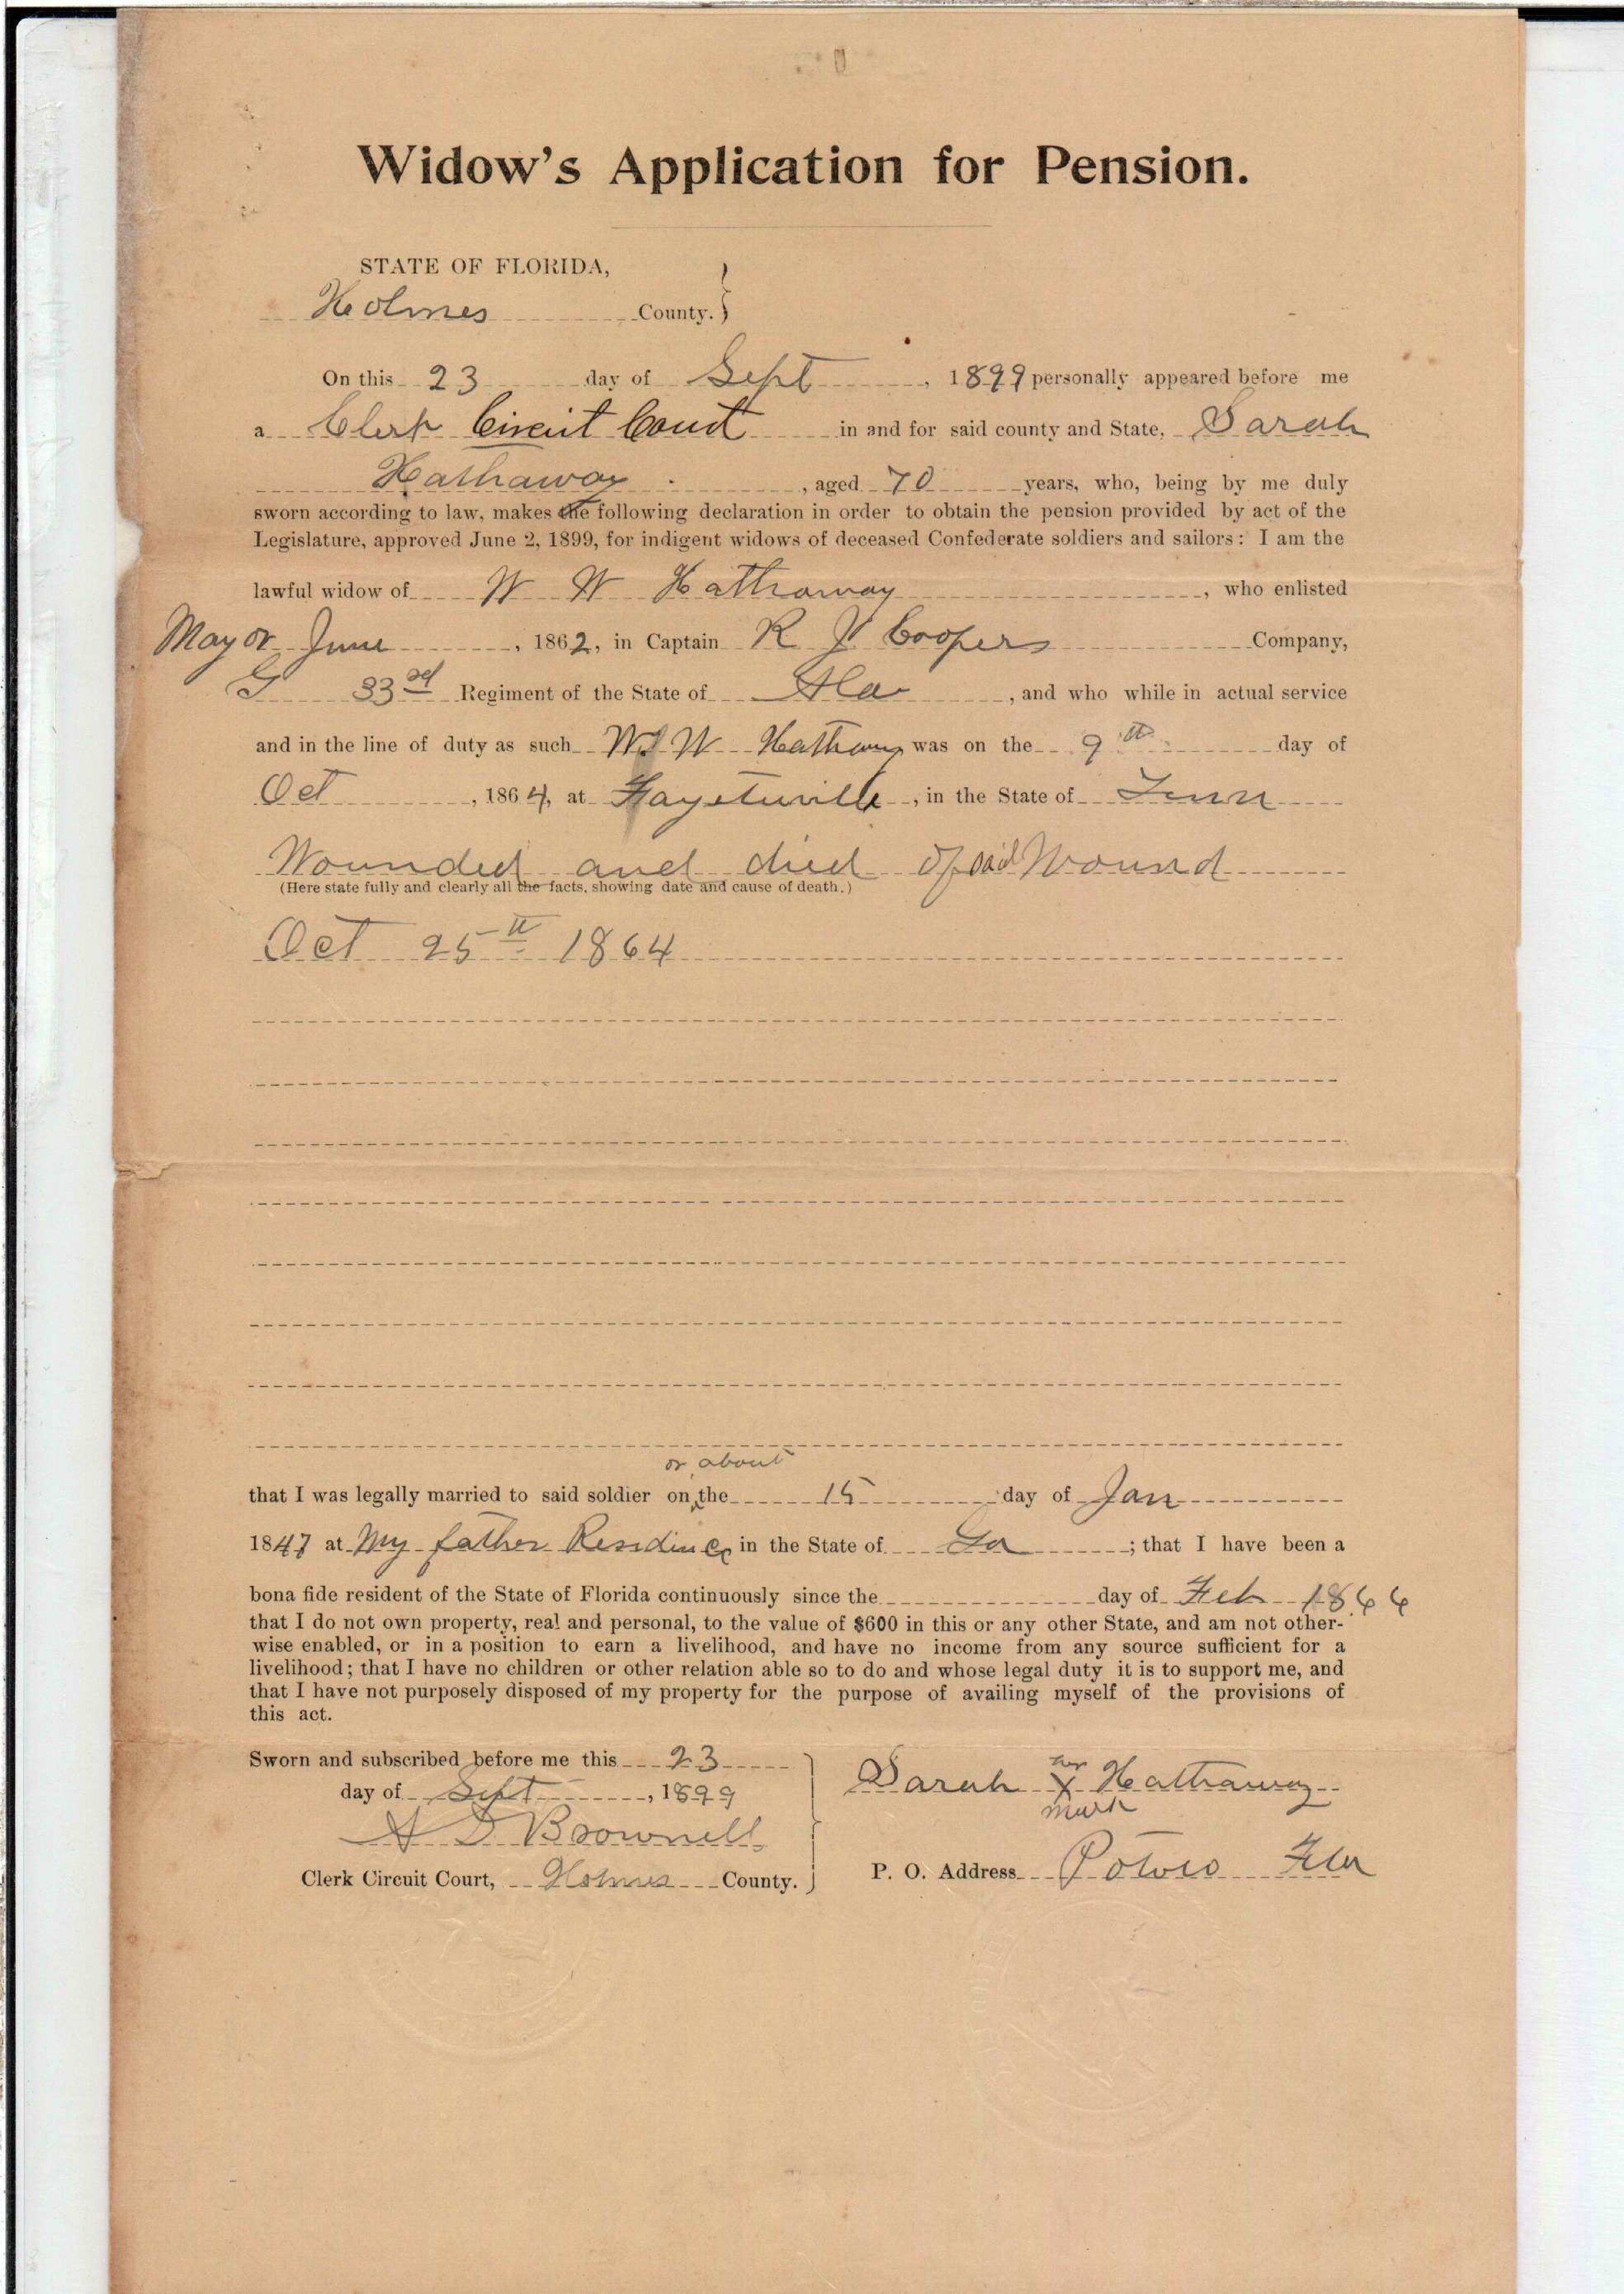 Widow's Application for Pension.
STATE OF FLORIDA,
Holmes County. }
On this 23 day of Sept, 1899 personally appeared before me
a Clerk Circuit Court in and for said county and State, Sarah
Hathaway, aged 70 years, who, being by me duly
sworn according to law, makes the following declaration in order to obtain the pension provided by act of the
Legislature, approved June 2, 1899, for indigent widows of deceased Confederate soldiers and sailors: I am the
lawful widow of W W Hathaway, who enlisted
May or June, 1862, in Captain R J Coopers Company,
G 33rd Regiment of the State of Ala, and who while in actual service
and in the line of duty as such W W Hathaway was on the 9th day of
Oct, 1864, at Fayetuville, in the State of Tenn
Wounded and died of said Wound
(Here state fully and clearly all the facts, showing date and cause of death.)
Oct 25th 1864
or about
that I was legally married to said soldier on the 15 day of Jan
1847 at My father Residince in the State of Ga; that I have been a
bona fide resident of the State of Florida continuously since the day of Feb 1866
that I do not own property, real and personal, to the value of $600 in this or any other State, and am not other-
wise enabled, or in a position to earn a livelihood, and have no income from any source sufficient for a
livelihood; that I have no children or other relation able so to do and whose legal duty it is to support me, and
that I have not purposely disposed of my property for the purpose of availing myself of the provisions of
this act.
Sworn and subscribed before me this 23
day of Sept, 1899
Brownell
Clerk Circuit Court, Holmes County.
her
Sarah X Hathaway
mark
P. O. Address Potolo Fla